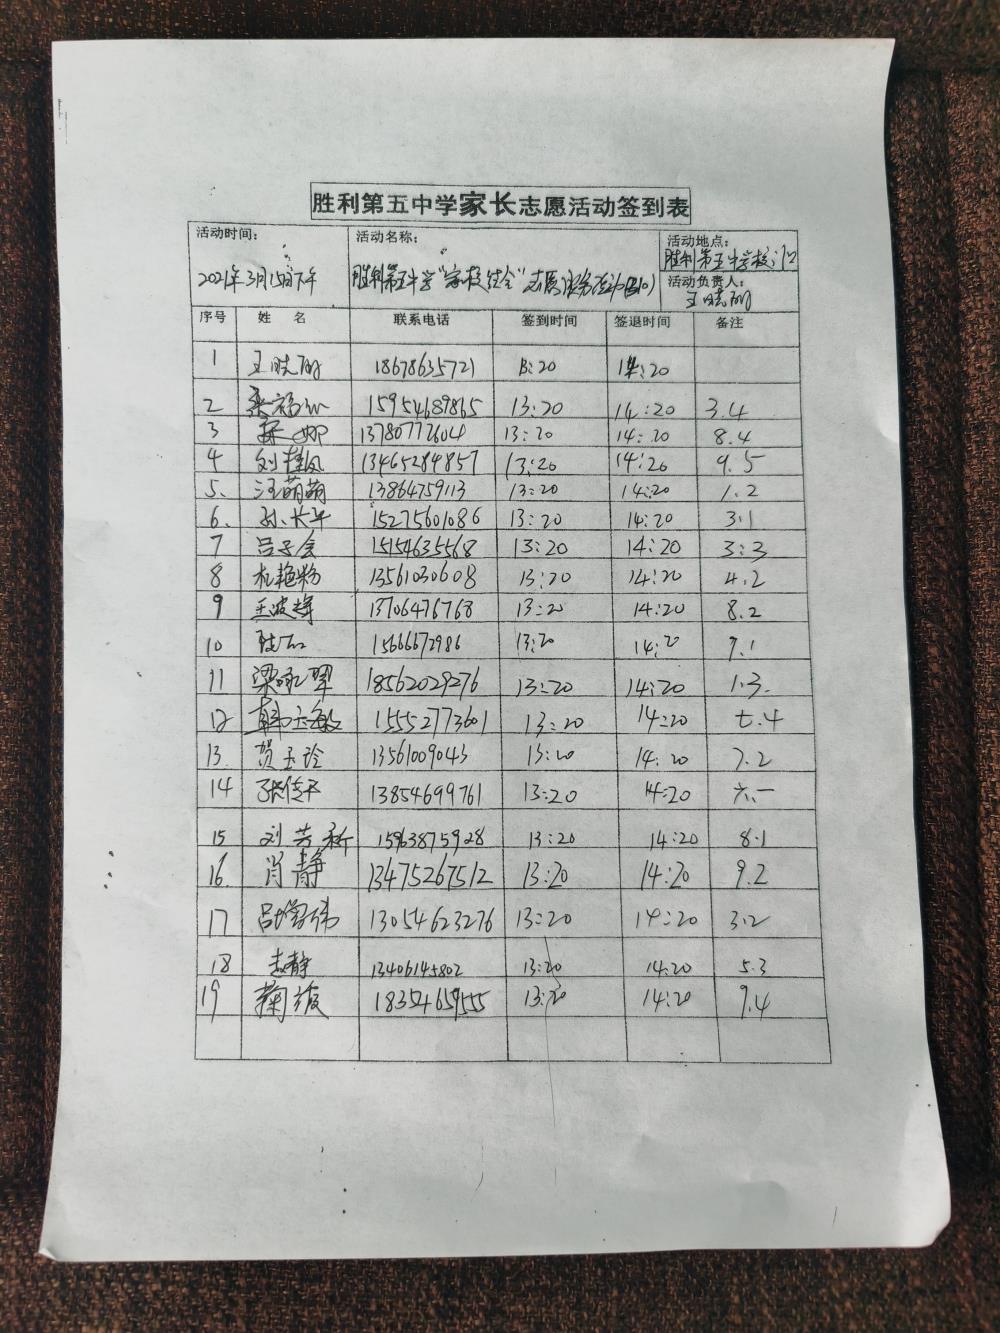 胜利第五中学家长志愿活动签到表
活动时间： 活动名称： 活动地点：
2021年3月15日下午 胜利第五中学"家校结合"志愿服务活动 胜利第五中学校门口
活动负责人：
王晓丽
序号 姓 名 联系电话 签到时间 签退时间 备注
1 王晓丽 18678635721 13:20 14:20
2 15954689865 13:20 14:20 3.4
3 娜 13780772604 13:20 14:20 8.4
4 刘桂凤 13465284857 13:20 14:20 9.5
5、 汪萌萌 13864759113 13:20 14:20 1.2
6. 孙长平 15275601086 13:20 14:20 3.1
7 吕子会 15154635568 13:20 14:20 3:3
8 杜艳粉 13561030608 13:20 14:20 4.2
9 王波 13706476768 13:20 14:20 8.2
10 15666672986 13:20 14:20 9.1
11 梁 翠 18562029276 13:20 14:20 1.3.
12 韩玉敏 15552773601 13:20 14:20 七.4
13. 贺玉玲 13561009043 13:20 14:20 7.2
14 张 13854699761 13:20 14:20 六.一
15 刘芳新 15963875928 13:20 14:20 8.1
16. 肖静 13475267512 13:20 14:20 9.2
17 吕 伟 13054623276 13:20 14:20 3.2
18 志静 13406145802 13:20 14:20 5.3
19 18354659555 13:20 14:20 9.4